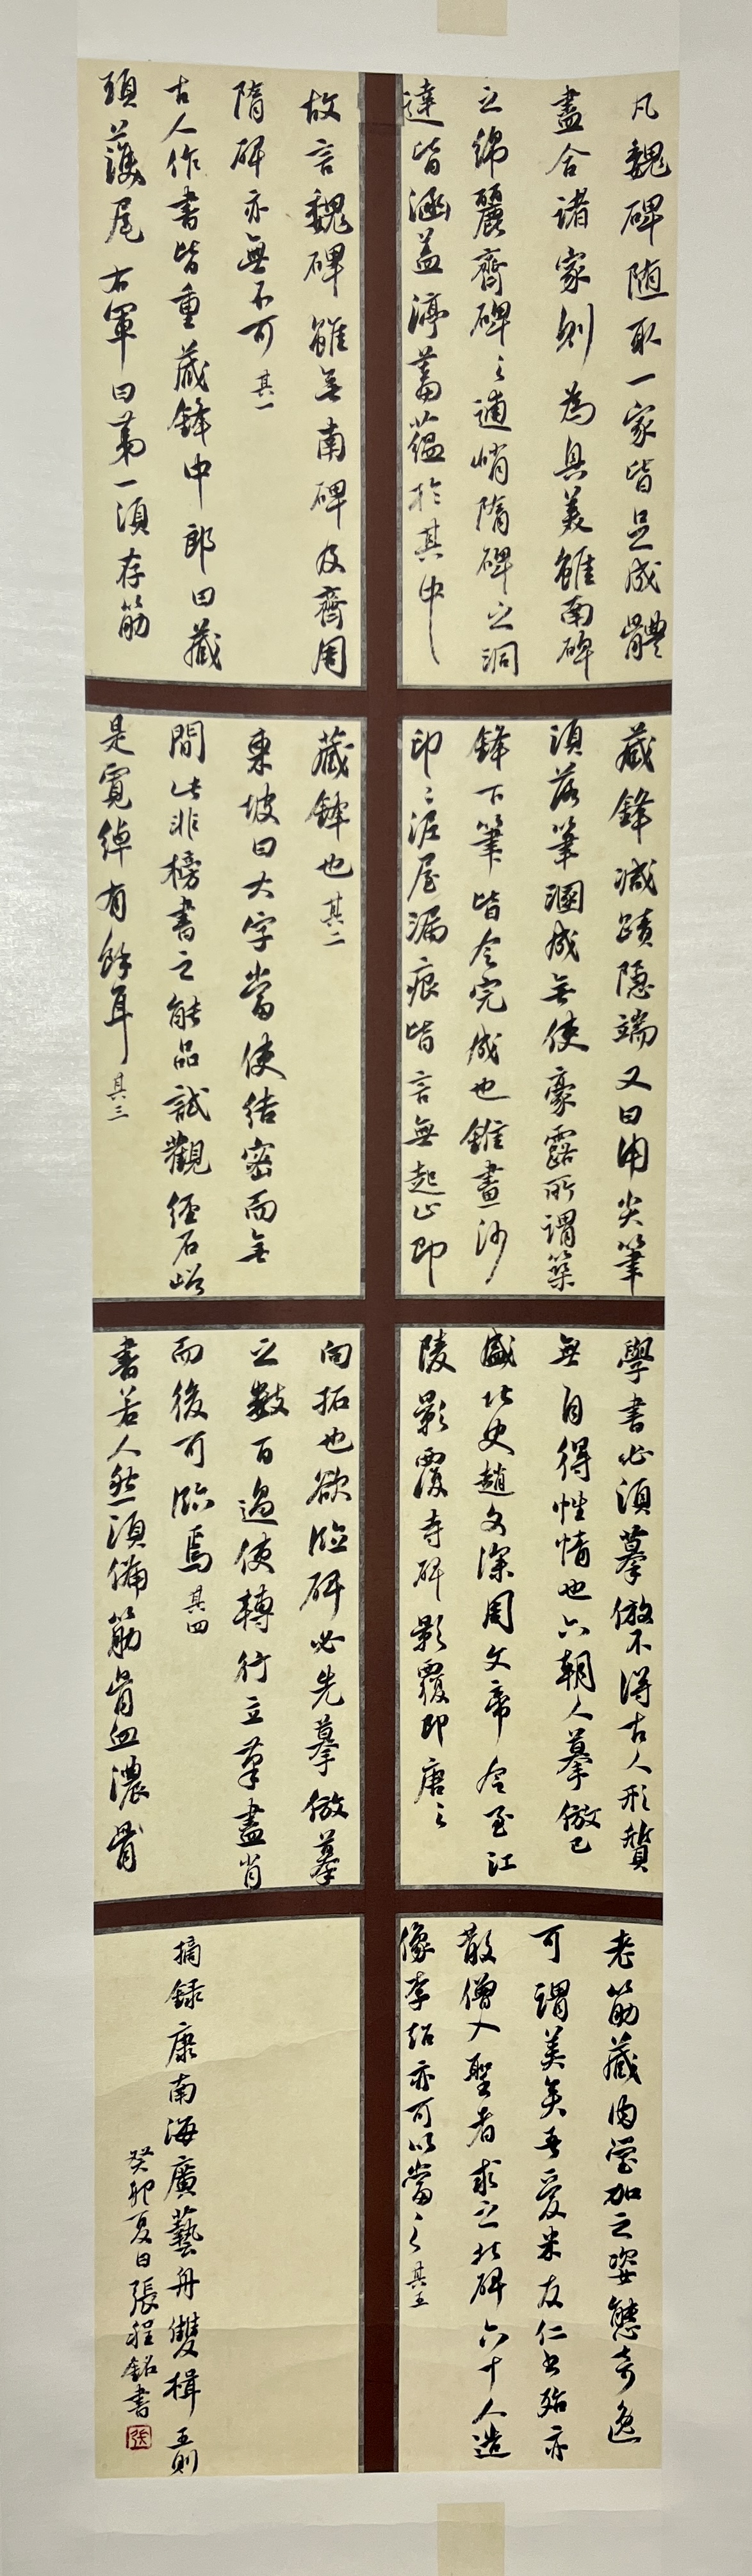 凡魏碑随取一家皆足成體
盡合諸家則為具美雖南碑
之綿麗齊碑之逋峭隋碑之洞
達皆涵蓋渟蓄蘊於其中
故言魏碑雖無南碑及齊周
隋碑亦無不可 其一
古人作書皆重藏鋒中郎曰藏
頭護尾右軍曰第一須存筋
藏鋒滅蹟隱端又曰用尖筆
須落筆溷成無使豪露所謂築
鋒下筆皆令完成也錐畫沙
印印泥屋漏痕皆言無起止即
藏鋒也 其二
東坡曰大字當使結密而無
間此非榜書之能品試觀經石峪
是寬綽有餘耳 其三
學書必須摹倣不得古人形質
無自得性情也六朝人摹倣已
盛北史趙文深周文帝令至江
陵影覆寺碑影覆即唐之
向拓也欲臨碑必先摹倣摹
之數百過使轉行立筆盡肖
而後可臨焉 其四
書若人然須備筋骨血濃骨
老筋藏肉瑩加之姿態奇逸
可謂美矣吾愛米友仁書殆亦
散僧入聖者求之北碑六十人造
像李超亦可以當之 其五
摘録康南海廣藝舟雙楫五則
癸卯夏日張程銘書
張